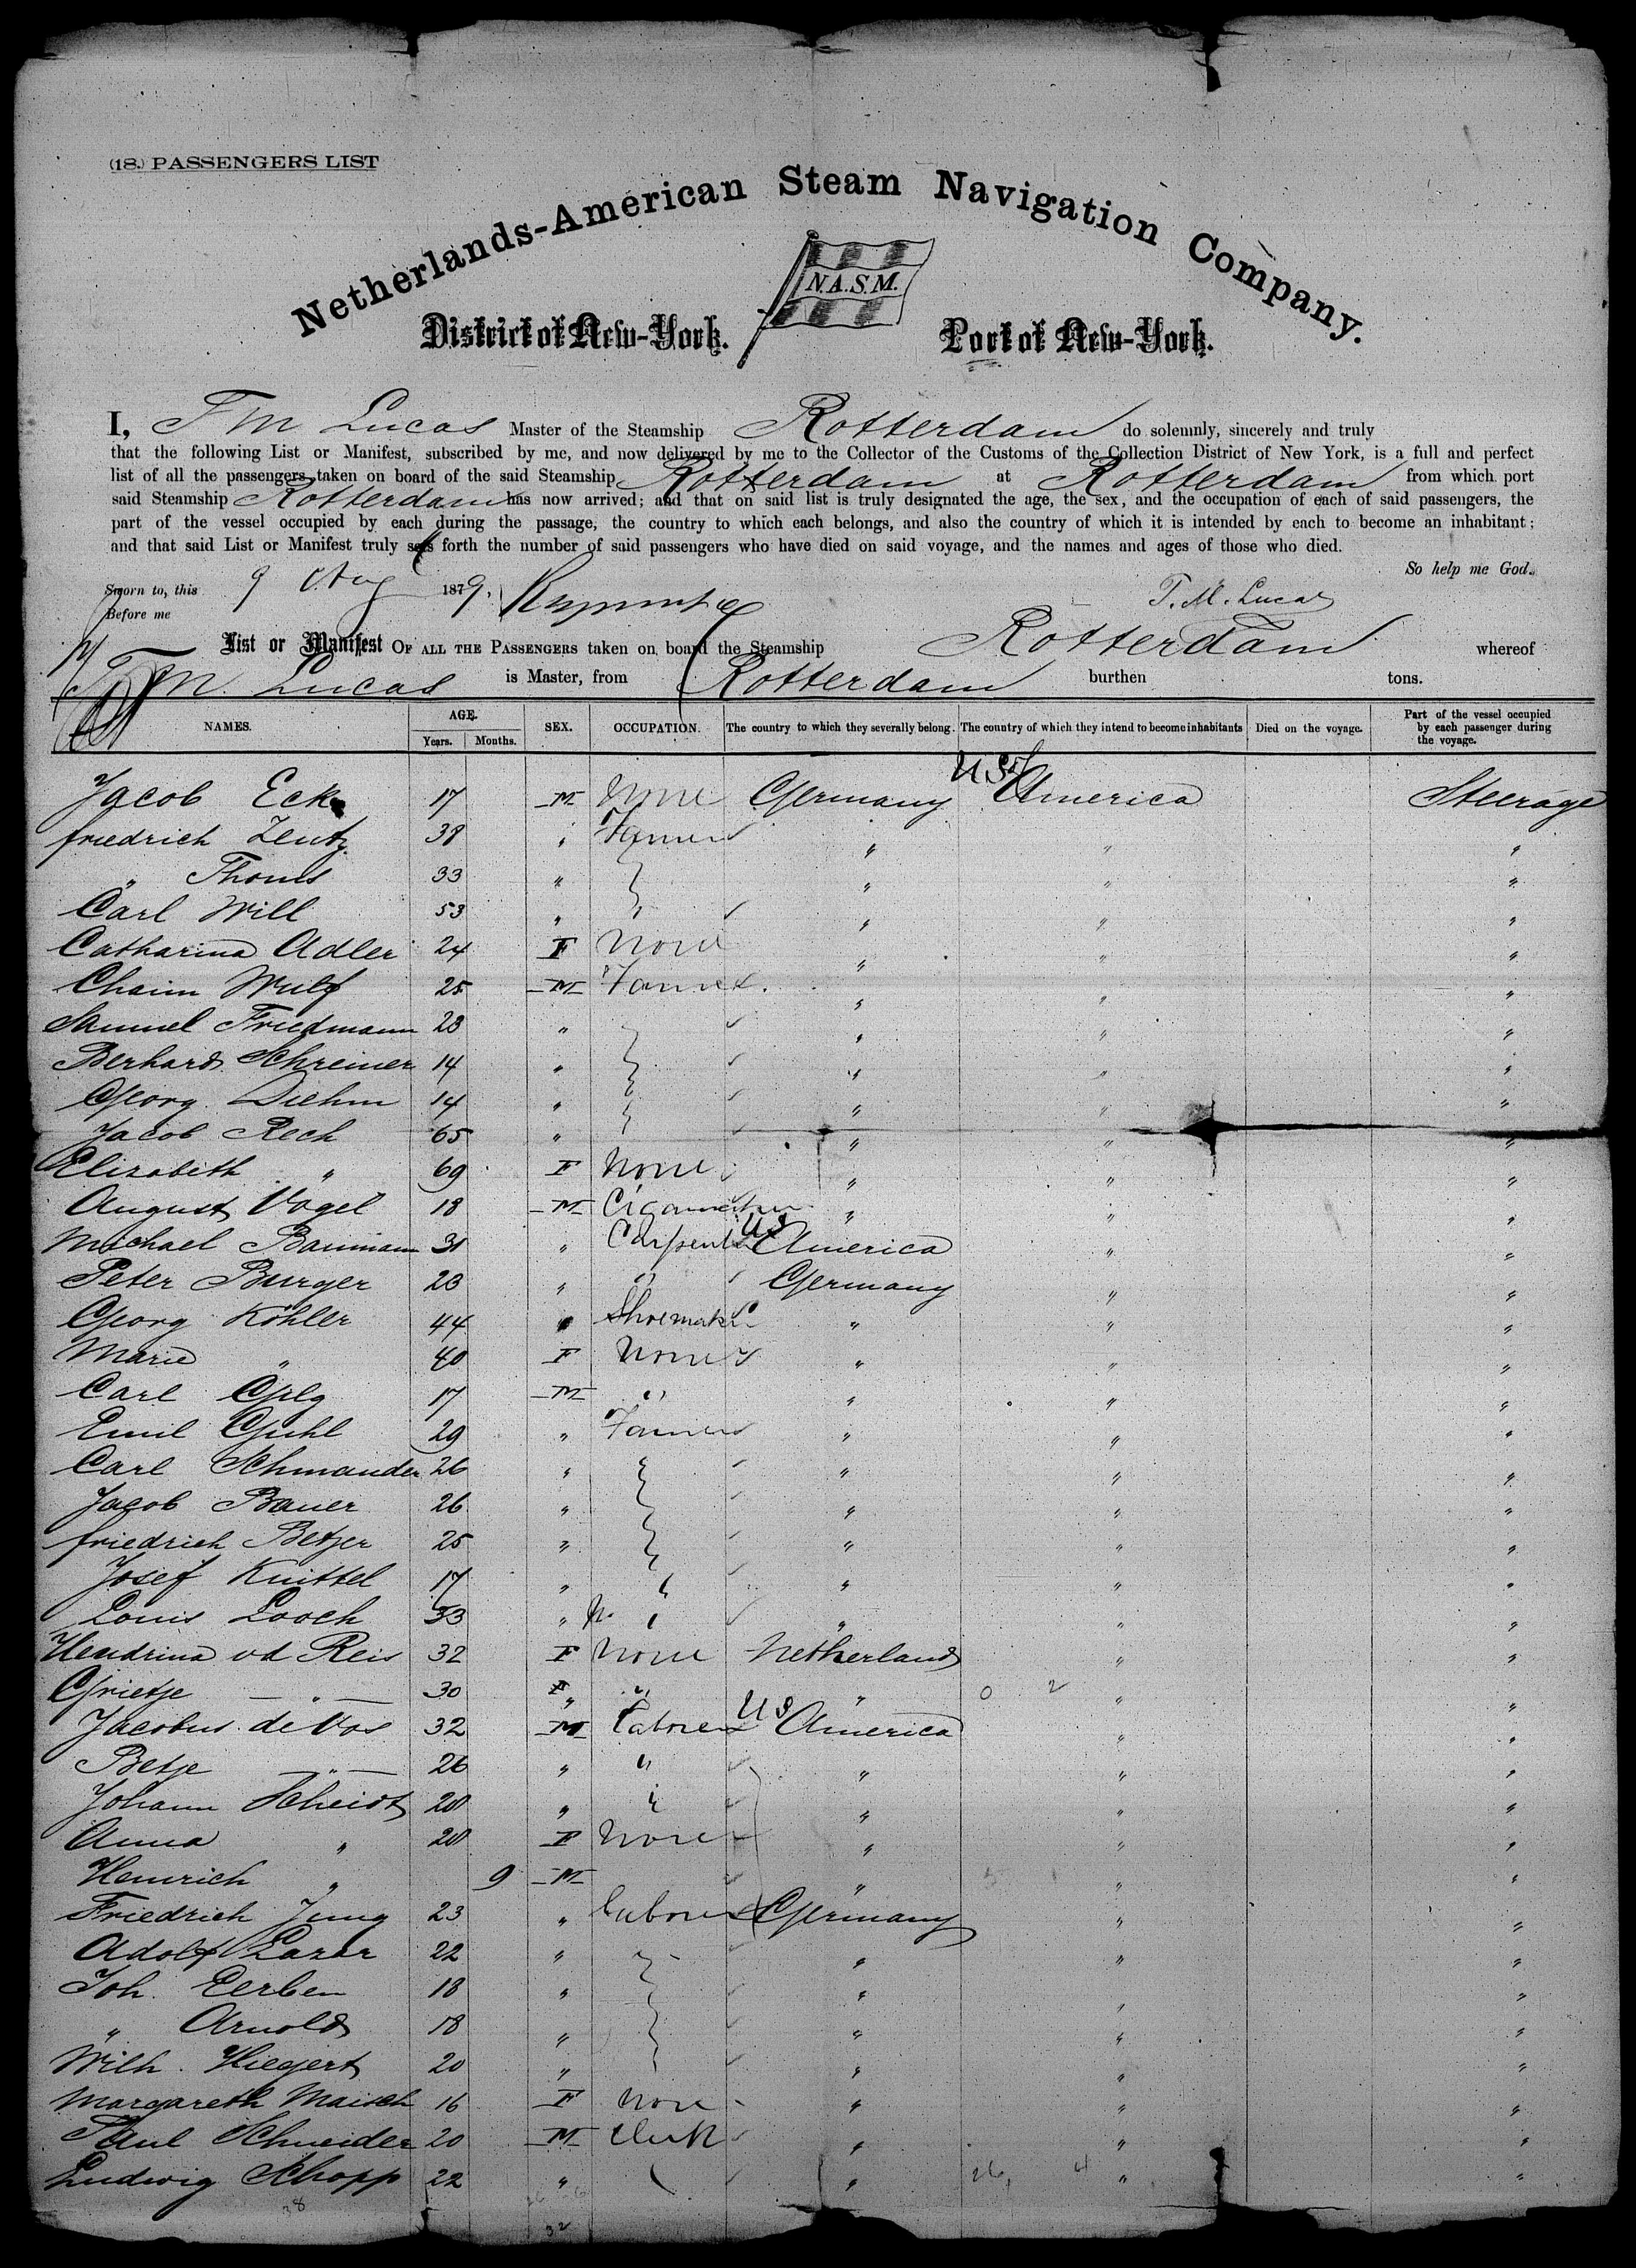 (18.) PASSENGERS LIST
Netherlands-American Steam Navigation Company.
N.A.S.M.
District of New-York. Port of New-York.
I, F M Lucas Master of the Steamship Rotterdam do solemnly, sincerely and truly
that the following List or Manifest, subscribed by me, and now delivered by me to the Collector of the Customs of the Collection District of New York, is a full and perfect
list of all the passengers taken on board of the said Steamship Rotterdam at Rotterdam from which port
said Steamship Rotterdam has now arrived; and that on said list is truly designated the age, the sex, and the occupation of each of said passengers, the
part of the vessel occupied by each during the passage, the country to which each belongs, and also the country of which it is intended by each to become an inhabitant;
and that said List or Manifest truly sets forth the number of said passengers who have died on said voyage, and the names and ages of those who died.
So help me God.
Sworn to, this 9 Aug 1879.
Before me
T. M. Lucas
List or Manifest OF ALL THE PASSENGERS taken on board the Steamship Rotterdam whereof
F M. Lucas is Master, from Rotterdam burthen tons.
NAMES. AGE. Years. Months. SEX. OCCUPATION. The country to which they severally belong. The country of which they intend to become inhabitants Died on the voyage. Part of the vessel occupied by each passenger during the voyage.
Jacob Eck 17 M None Germany US America Steerage
friedrich Zentz 38 " Farmer " " "
" Thoms 33 " " " " "
Carl Will 53 " " " " "
Catharina Adler 24 F None " " "
Chaim Wulf 25 M Farmer " " "
Samuel Friedmann 23 " " " "
Berhard Schreiner 14 " " " "
Georg Diehm 14 " " " "
Jacob Rech 65 " " " "
Elizabeth " 69 F None " " "
August Vogel 18 M Cigarmaker " " "
Michael Baumann 31 " Carpenter US America " "
Peter Burger 23 " " Germany " "
Georg Köhler 44 " Shoemaker " " "
Marie " 40 F None " " "
Carl 17 M " " " "
Emil Guhl 29 " Farmer " " "
Carl Schmander 26 " " " "
Jacob Bauer 26 " " " "
friedrich Betzer 25 " " " "
Josef Knittel 17 " " " " "
Louis Looch 33 " " " " "
Hendrina vd Reis 32 F None Netherland " "
Grietje " 30 " " " 0 2 " "
Jacobus de Vos 32 M Laborer US America " "
Betje " 26 " " " " "
Johann Scheidt 20 " " " " "
Anna " 20 F None " " "
Heinrich " 9 M " " "
Friedrich Jung 23 " Laborer Germany " "
Adolf Lazar 22 " " " "
Joh. Eerben 18 " " " "
" Arnold 18 " " " "
Wilh. Hiegert 20 " " " "
Margareth Maisch 16 F None " " "
Paul Schneider 20 M Clerk " " "
Ludwig Schopp 22 " " 26, 4 " "
38
32